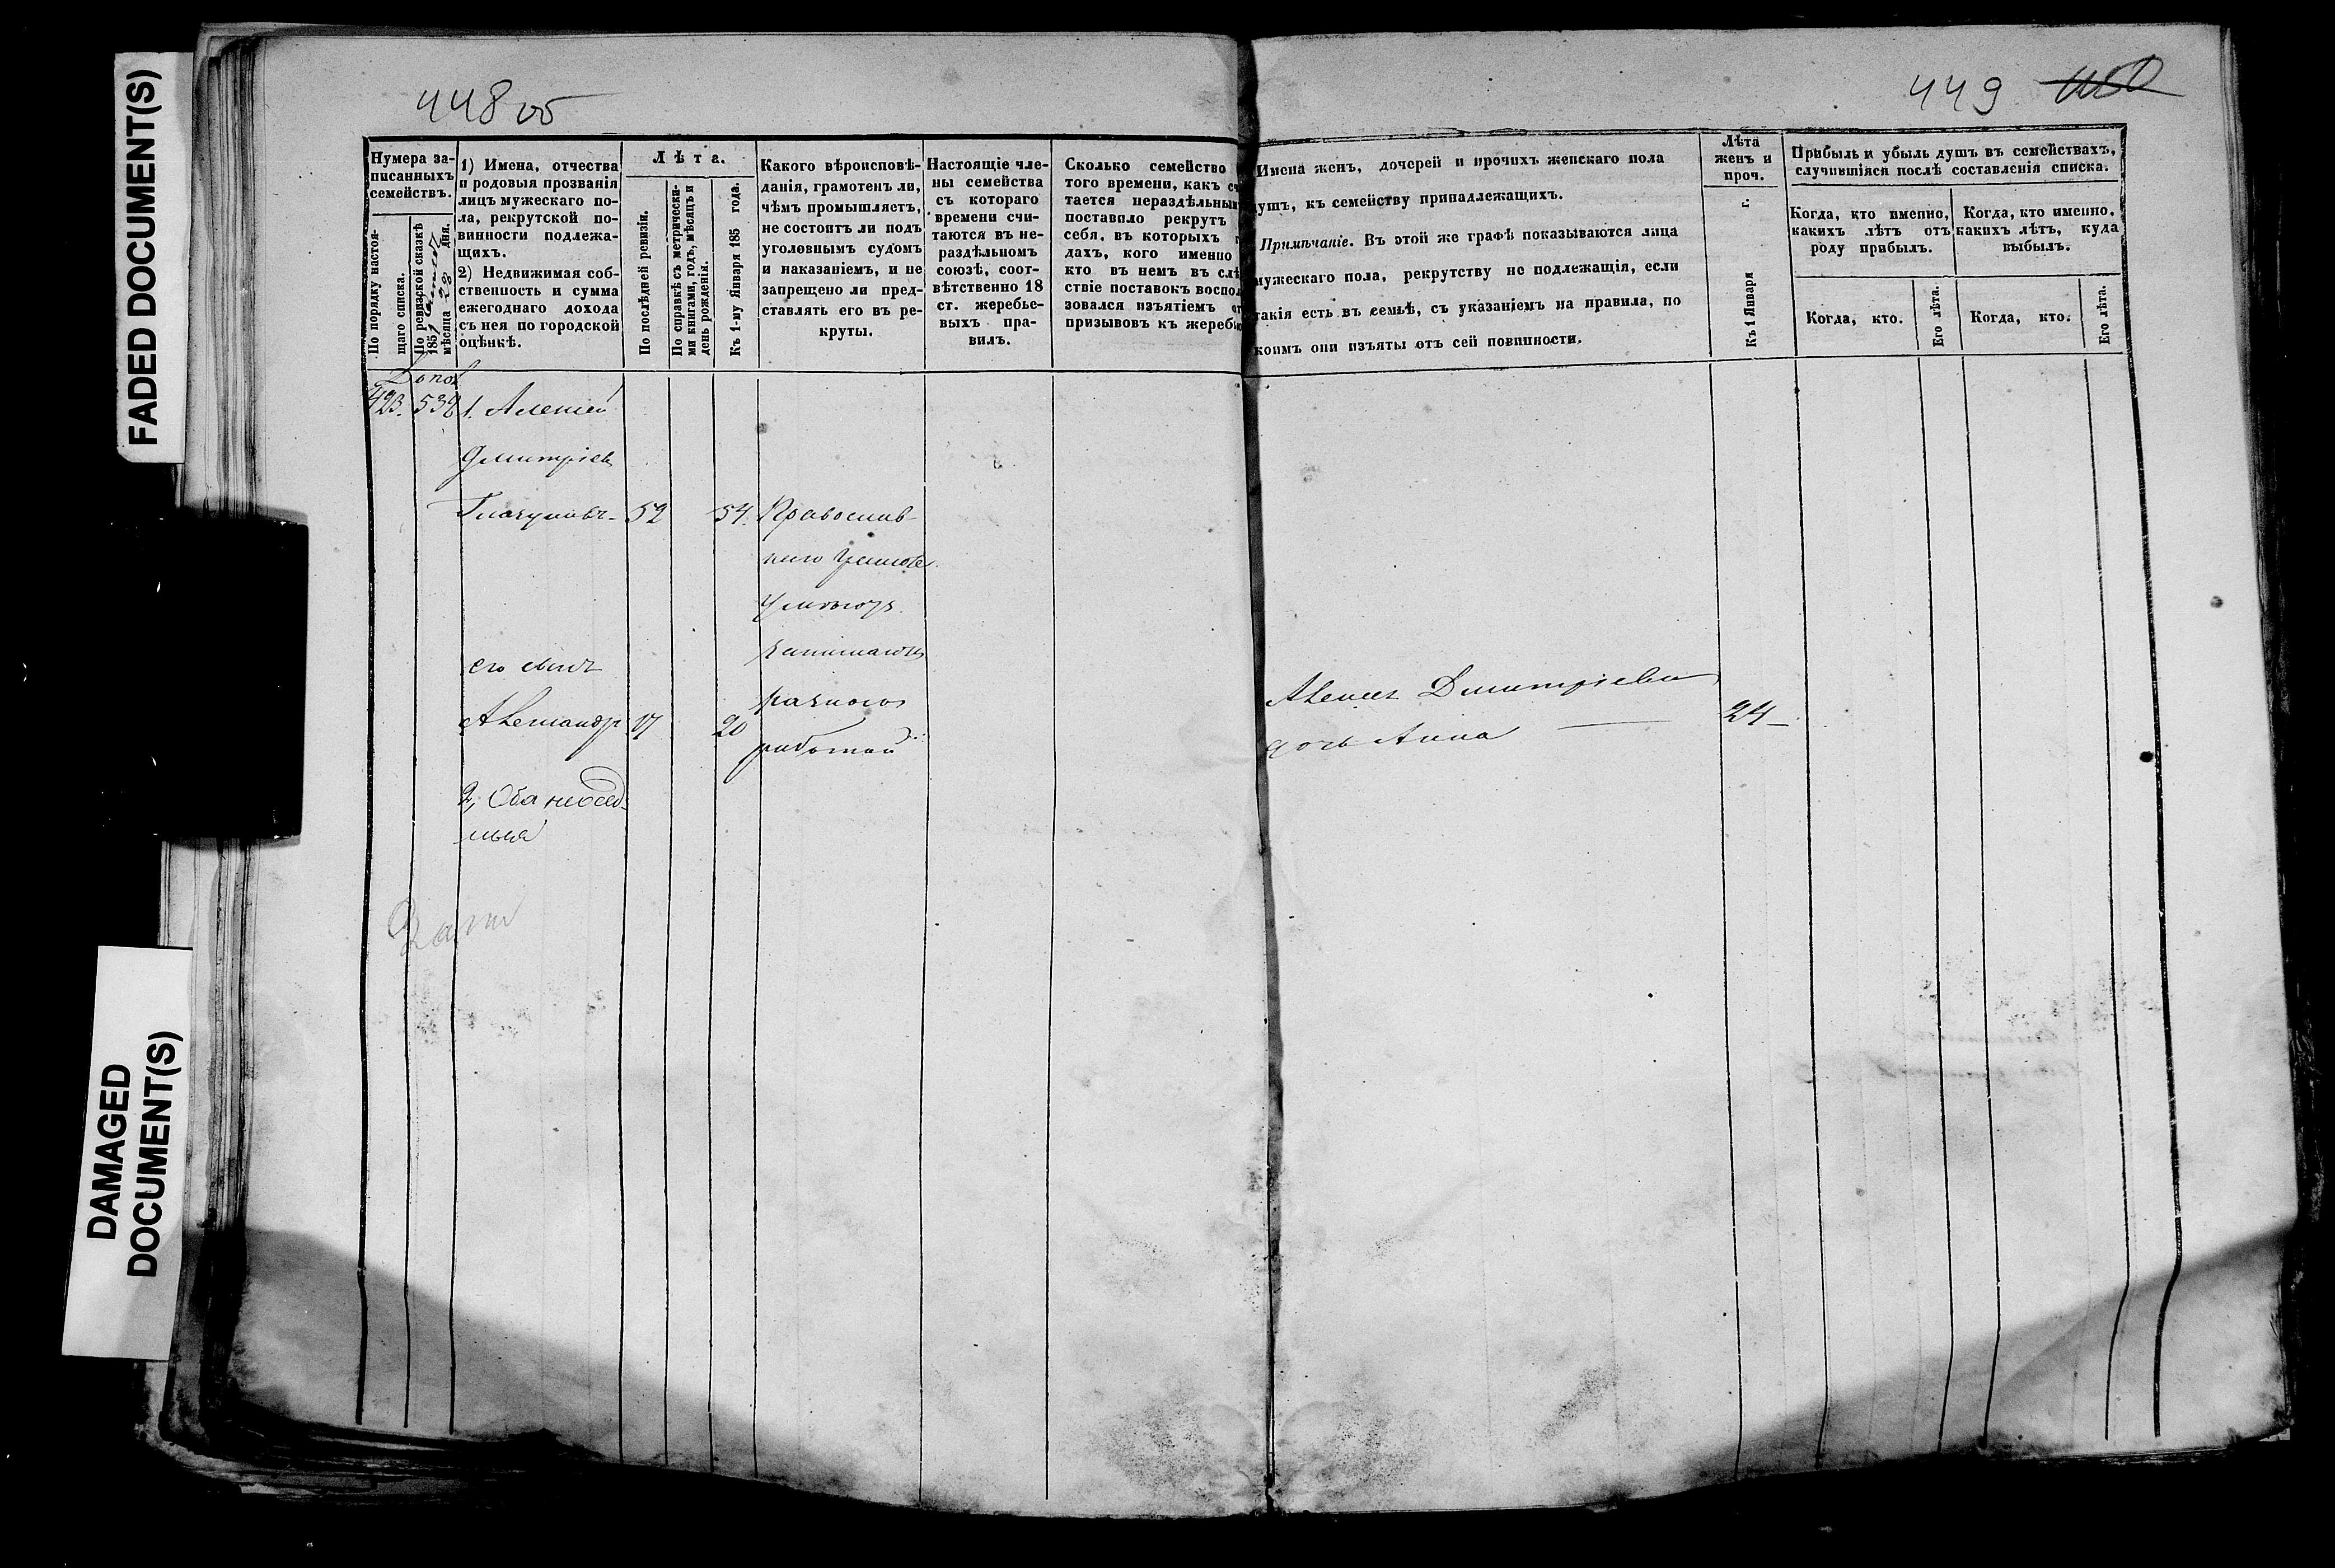 FADED DOCUMENT(S)
DAMAGED
DOCUMENT(S)
448 об
449
Нумера за-
писанныхъ
семействъ.
По порядку настоя-
щаго списка.
По ревизской сказкѣ
185
мѣсяца 28 дня.
1) Имена, отчества
и родовыя прозванія
лицъ мужескаго по-
ла, рекрутской по-
винности подлежа-
щихъ.
2) Недвижимая соб-
ственность и сумма
ежегоднаго дохода
съ нея по городской
оцѣнкѣ.
Лѣта.
По послѣдней ревизіи.
По справкѣ съ метрически-
ми книгами, годъ, мѣсяцъ и
день рожденія.
Къ 1-му Января 185 года.
Какого вѣроисповѣ-
данія, грамотенъ ли,
чѣмъ промышляетъ,
не состоитъ ли подъ
уголовнымъ судомъ
и наказаніемъ, и не
запрещено ли пред-
ставлять его въ ре-
круты.
Настоящіе чле-
ны семейства
съ котораго
времени счи-
таются въ не-
раздѣльномъ
союзѣ, соот-
вѣтственно 18
ст. жеребье-
выхъ пра-
вилъ.
Сколько семейство
того времени, какъ сч
тается нераздѣльным
поставило рекрутъ
себя, въ которыхъ г
дахъ, кого именно
кто въ немъ въ слѣ
ствіе поставокъ воспол
зовался изъятіемъ от
призывовъ къ жеребью
Имена женъ, дочерей и прочихъ женскаго пола
душъ, къ семейству принадлежащихъ.
Примѣчаніе. Въ этой же графѣ показываются лица
мужескаго пола, рекрутству не подлежащія, если
такія есть въ семьѣ, съ указаніемъ на правила, по
коимъ они изъяты отъ сей повинности.
Лѣта
женъ и
проч.
Къ 1 Января г.
Прибыль и убыль душъ въ семействахъ,
случившіяся послѣ составленія списка.
Когда, кто именно,
какихъ лѣтъ отъ
роду прибылъ.
Когда, кто именно,
какихъ лѣтъ, куда
выбылъ.
Когда, кто.
Его лѣта.
Когда, кто.
Его лѣта.
Допол
423. 538 1. Алексей
Дмитріевъ
Глазуновъ - 52 54. Православ-
наго
его сынъ
Александръ 17 20
работой
2, Оба
Алексея Дмитріева
дочь Анна 24